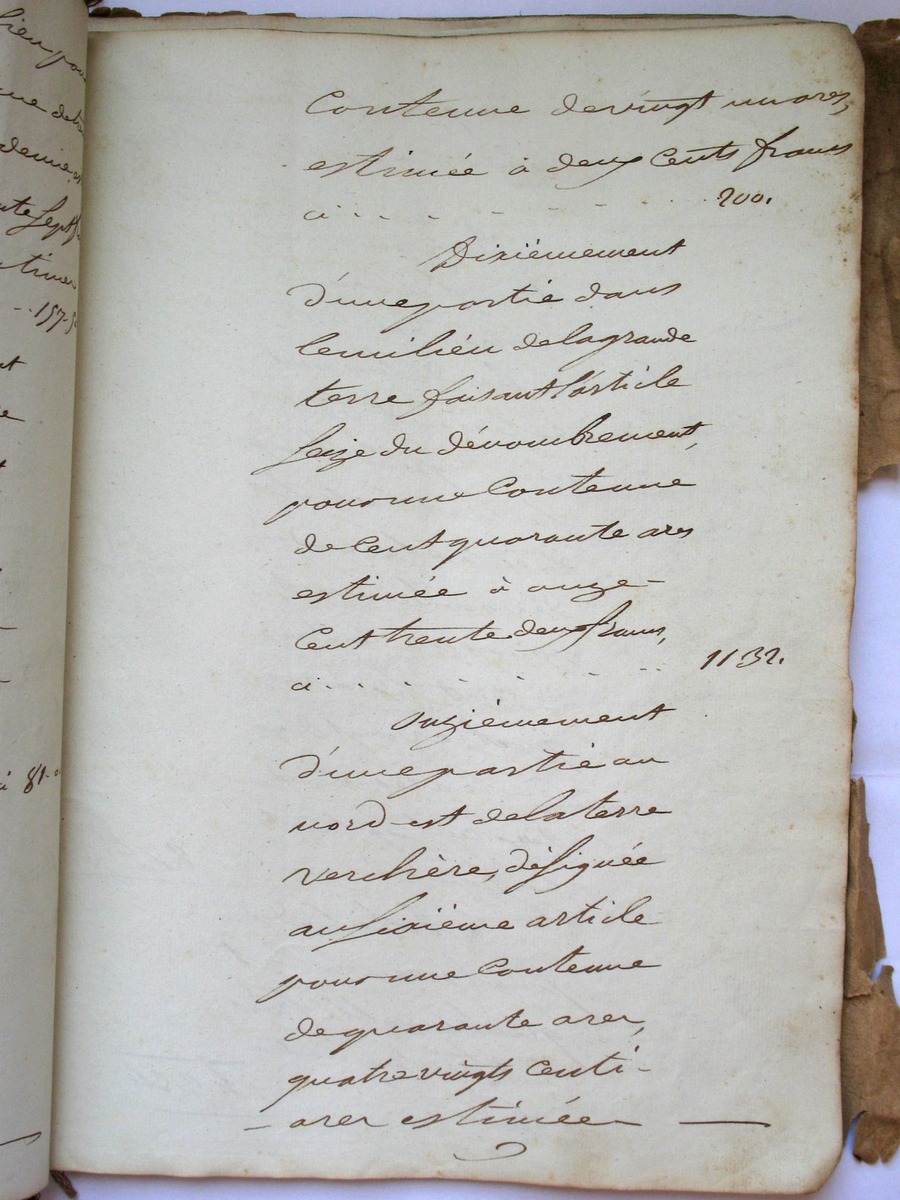 Contenue de vingt un ares,
estimée à deux Cents francs
ci - - - - - - - 200.
Dixièmement
D'une partie dans
le milieu de la grande
terre faisant l'article
Seize du dénombrement,
pour une Contenue
de Cent quarante ares
estimée à onze
Cent trente deux francs,
ci - - - - - - - 1132.
Onzièmement
D'une partie au
nord-est de la terre
verchère, désignée
au sixième article
pour une Contenue
de quarante ares,
quatre vingts Centi-
- ares estimée
157-5
ci 81-